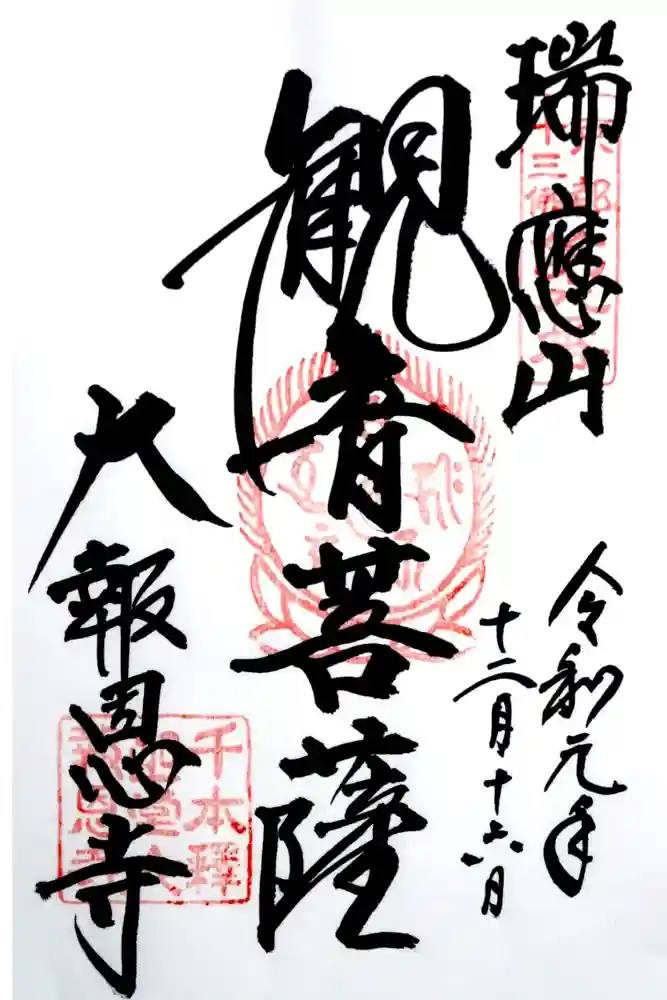 瑞應山
令和元年
十二月十六日
観音菩薩
大報恩寺
千本釋